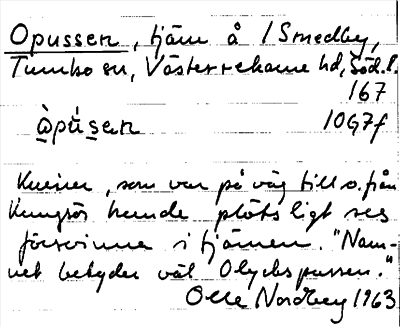 Opussen, tjärn å 1 Smedby,
Tumbo sn, Västerrekarne hd, Söd. l.
167
òpúsen 10G7f
Kvinnor, som var på väg till o. från
Kungsör kunde plötsligt ses
försvinna i tjärnen. "Nam-
net betyder väl Olyckspussen."
Olle Nordberg 1963